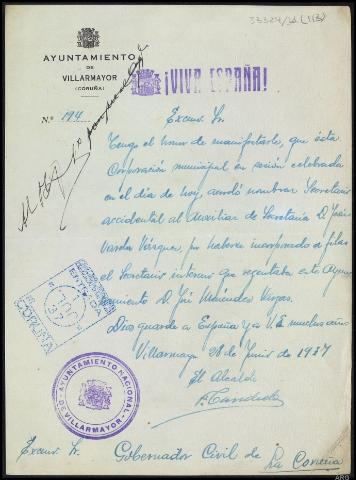 53324/14 (113)
AYUNTAMIENTO
DE
VILLARMAYOR
(CORUÑA)
¡VIVA ESPAÑA!
N.º 194
Excmo. Sr.
Tengo el honor de manifestarle, que ésta
Corporación municipal en sesión celebrada
en el dia de hoy, acordó nombrar Secretario
accidental al Auxiliar de Secretaria D. José
Varela Vázquez, por haberse incorporado a filas
el Secretario interino que regentaba este Ayun-
tamiento D. José Menéndez Vargas.
Dios guarde a España y a V.E. muchos años
Villarmayor 28 de Junio de 1937
El Alcalde
ENTRADA
1 JUL 37
CORUÑA
AYUNTAMIENTO NACIONAL
DE VILLARMAYOR
Excmo. Sr. Gobernador Civil de La Coruña
ARG